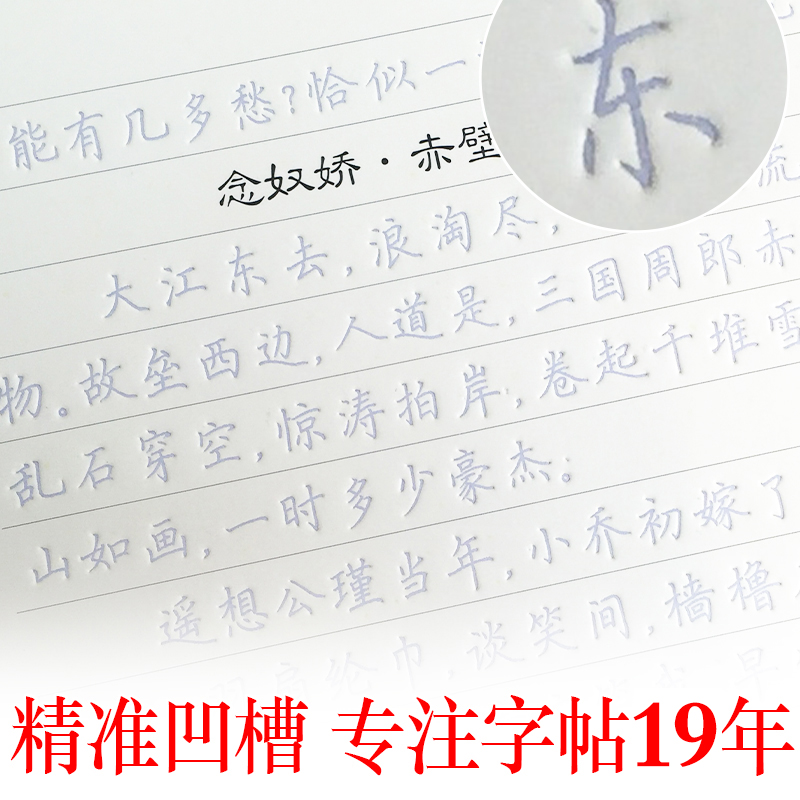 东
能有几多愁?恰似一
念奴娇·赤壁
大江东去,浪淘尽,
流
物。故垒西边,人道是,三国周郎赤
乱石穿空,惊涛拍岸,卷起千堆雪
山如画,一时多少豪杰。
遥想公瑾当年,小乔初嫁了
纶巾,谈笑间,樯橹
精准凹槽 专注字帖19年